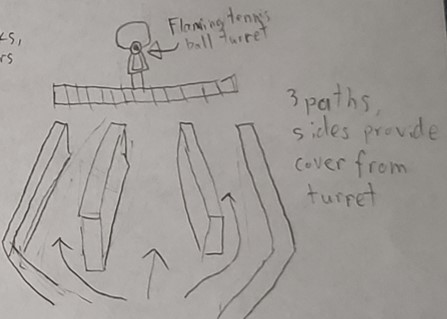 Flaming tennis
ball turret
3 paths,
sides provide
cover from
turret